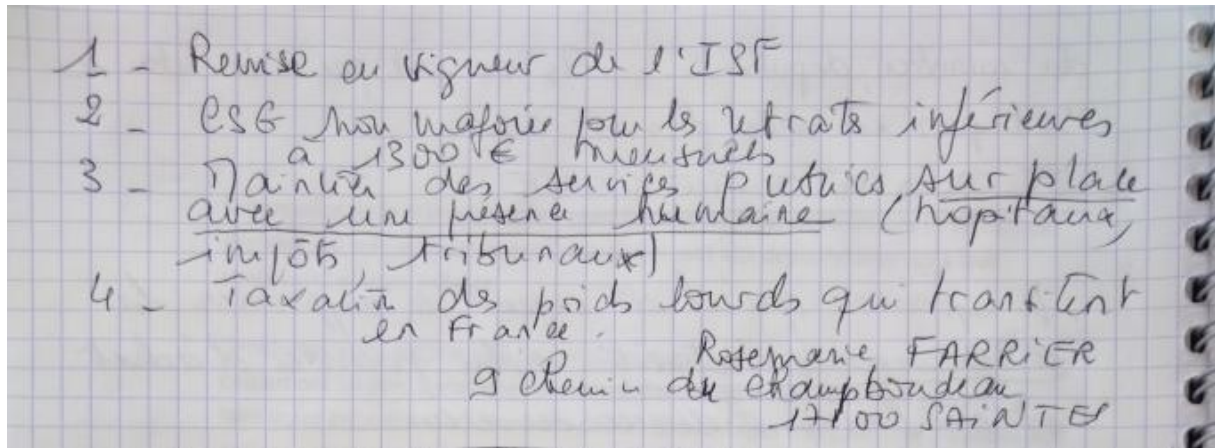 1 - Remise en vigueur de l'ISF
2 - CSG non majorée pour les retraits inférieures
à 1300 € mensuels
3 - Maintien des services publics sur place
avec une présence humaine (hopitaux,
impôts, tribunaux)
4 - Taxation des poids lourds qui transitent
en France.
Rosemarie FARRIER
9 chemin du champboudeau
17100 SAINTES